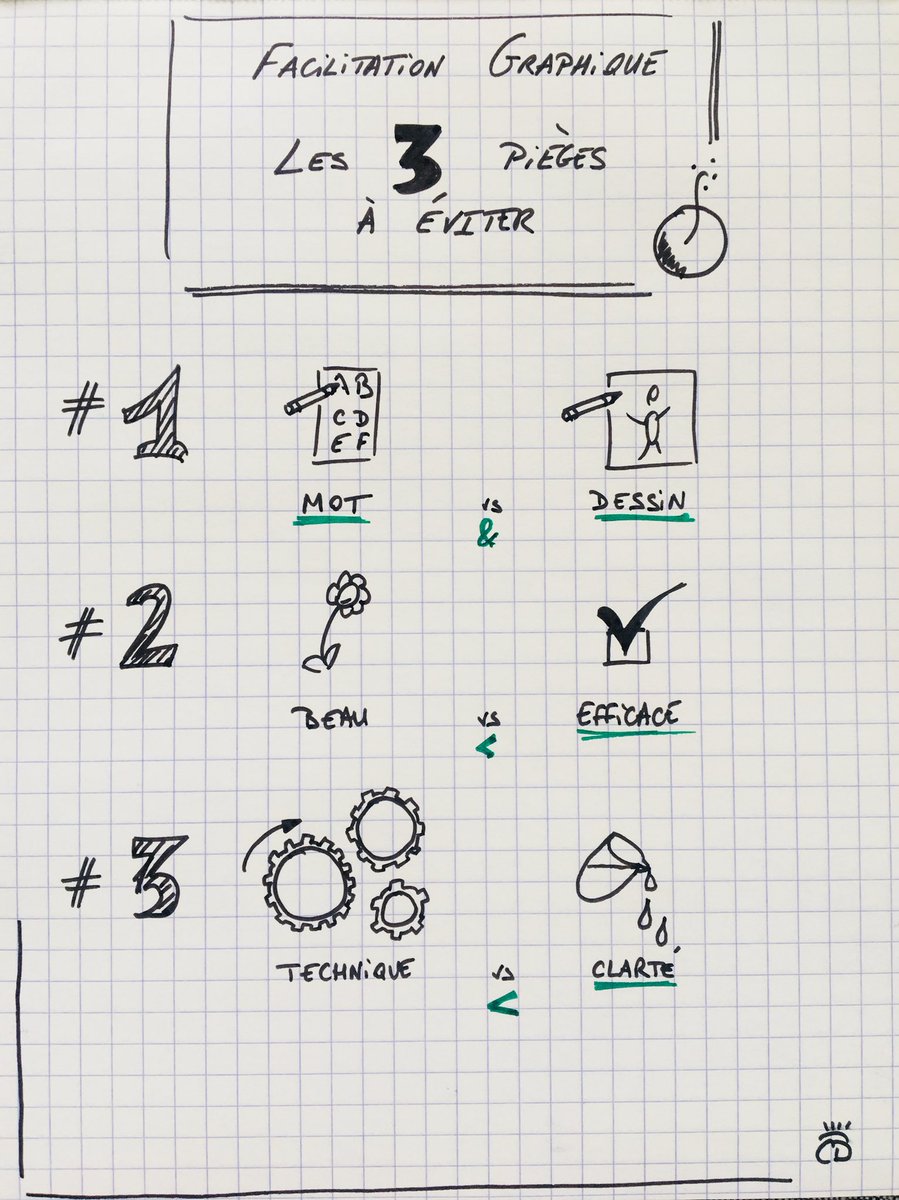 FACiLiTATiON GRAPHiQUE
LES 3 PiÈGES
À ÉViTER
# 1
AB
CD
EF
MOT vs DESSiN
&
# 2
BEAU vs EFFiCACE
<
# 3
TECHNiQUE vs CLARTÉ
<
CD